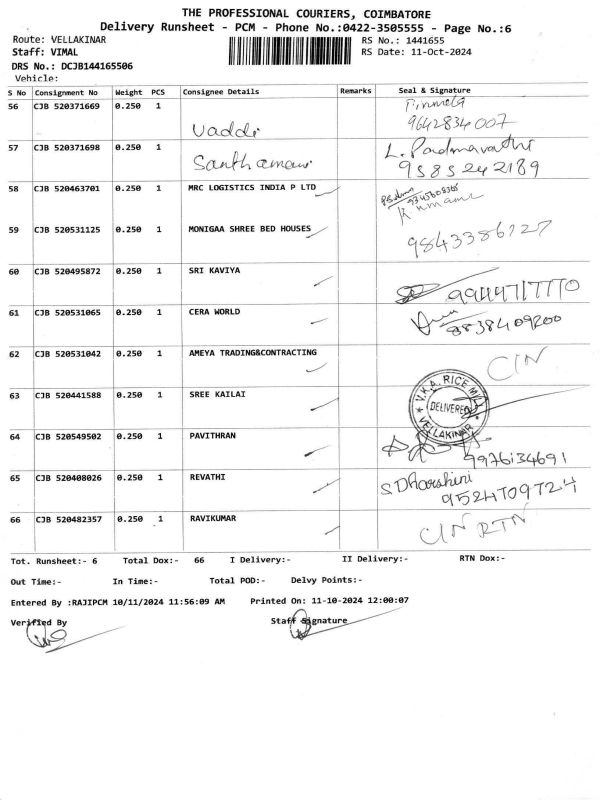 THE PROFESSIONAL COURIERS, COIMBATORE
Delivery Runsheet - PCM - Phone No.:0422-3505555 - Page No.:6
Route: VELLAKINAR RS No.: 1441655
Staff: VIMAL RS Date: 11-Oct-2024
DRS No.: DCJB144165506
Vehicle:
S No Consignment No Weight PCS Consignee Details Remarks Seal & Signature
56 CJB 520371669 0.250 1 Vaddi 9642834007
57 CJB 520371698 0.250 1 L. Padmavathi
9585242189
58 CJB 520463701 0.250 1 MRC LOGISTICS INDIA P LTD
59 CJB 520531125 0.250 1 MONIGAA SHREE BED HOUSES 9843386127
60 CJB 520495872 0.250 1 SRI KAVIYA
61 CJB 520531065 0.250 1 CERA WORLD
62 CJB 520531042 0.250 1 AMEYA TRADING&CONTRACTING CIN
63 CJB 520441588 0.250 1 SREE KAILAI V.K.A. RICE MILL
DELIVERED
VELLAKINAR
64 CJB 520549502 0.250 1 PAVITHRAN 9976134691
65 CJB 520408026 0.250 1 REVATHI S Dharshini
9524709724
66 CJB 520482357 0.250 1 RAVIKUMAR CIN RTN
Tot. Runsheet:- 6 Total Dox:- 66 I Delivery:- II Delivery:- RTN Dox:-
Out Time:- In Time:- Total POD:- Delvy Points:-
Entered By :RAJIPCM 10/11/2024 11:56:09 AM Printed On: 11-10-2024 12:00:07
Verified By Staff Signature